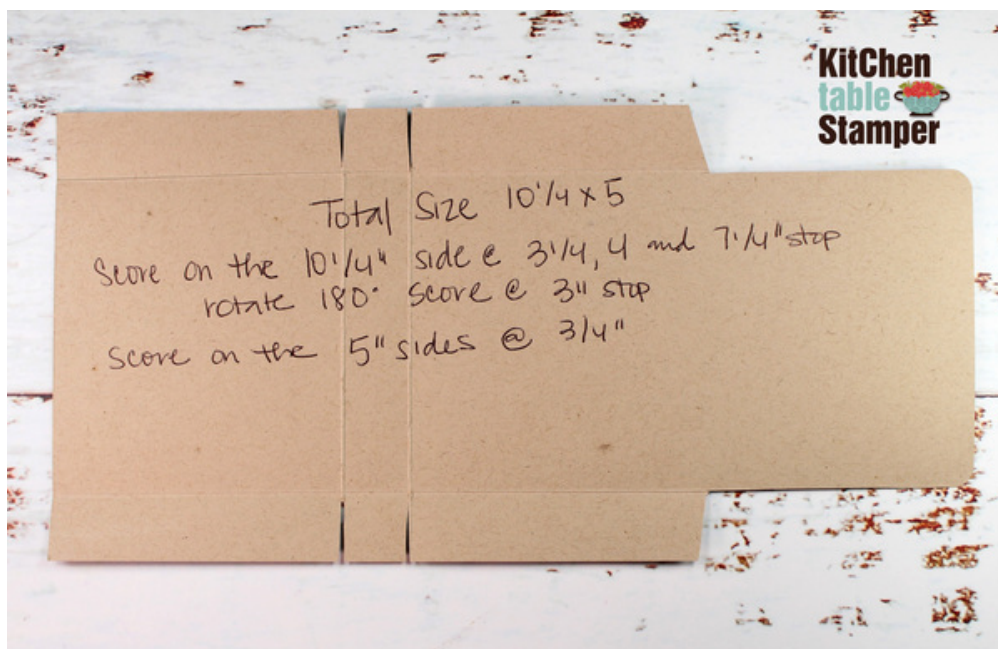 KitChen
table
Stamper
Total Size 10 1/4 x 5
Score on the 10 1/4" side @ 3 1/4, 4 and 7 1/4" stop
rotate 180° score @ 3" stop
Score on the 5" sides @ 3/4"